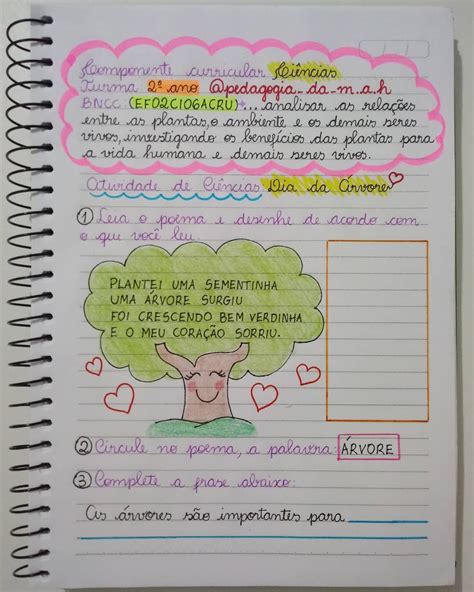 Componente curricular Ciências
Turma 2º ano @pedagogia_da_m.a.h
BNCC: (EF02CI06ACRU) → ... analisar as relações
entre as plantas, o ambiente e os demais seres
vivos, investigando os benefícios das plantas para
a vida humana e demais seres vivos.
Atividade de Ciências Dia da Árvore
1 Leia o poema e desenhe de acordo com
o que você leu.
PLANTEI UMA SEMENTINHA
UMA ÁRVORE SURGIU
FOI CRESCENDO BEM VERDINHA
E O MEU CORAÇÃO SORRIU.
2 Circule no poema, a palavra: ÁRVORE
3 Complete a frase abaixo:
As árvores são importantes para